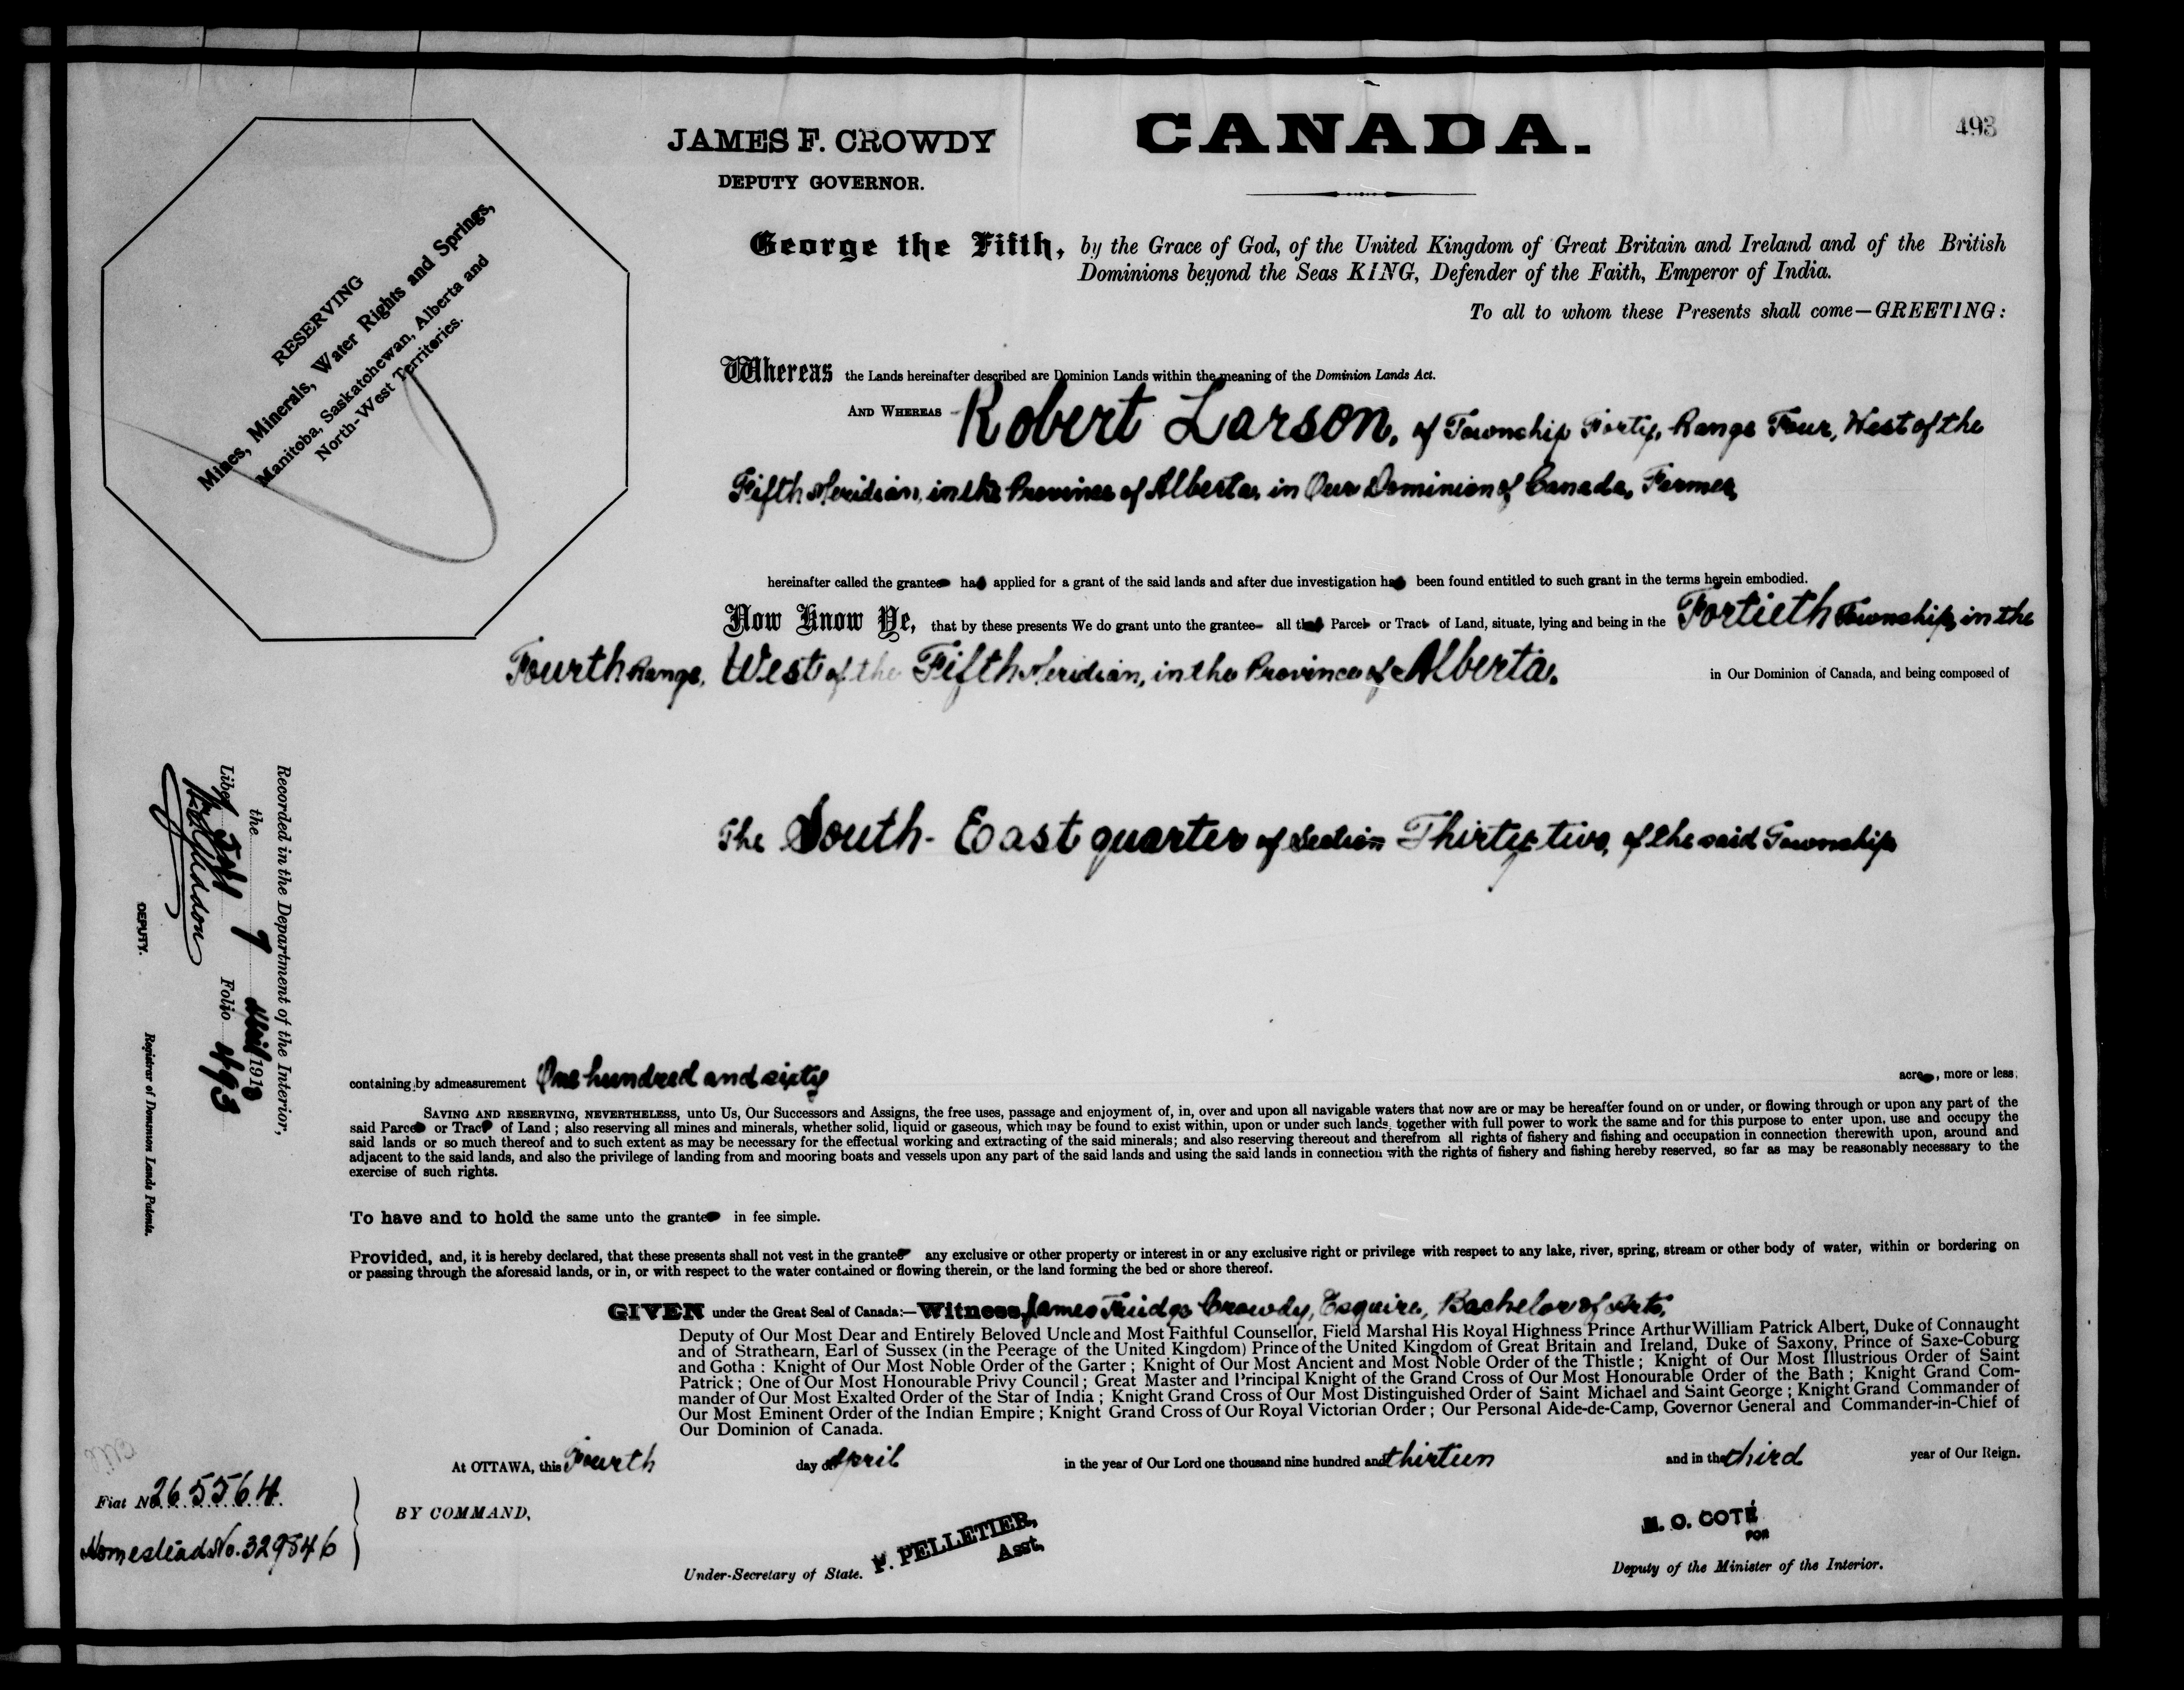 JAMES F. CROWDY
DEPUTY GOVERNOR.
CANADA.
493
RESERVING
Mines, Minerals, Water Rights and Springs,
Manitoba, Saskatchewan, Alberta and
North-West Territories.
George the Fifth, by the Grace of God, of the United Kingdom of Great Britain and Ireland and of the British
Dominions beyond the Seas KING, Defender of the Faith, Emperor of India.
To all to whom these Presents shall come—GREETING:
Whereas the Lands hereinafter described are Dominion Lands within the meaning of the Dominion Lands Act.
AND WHEREAS Robert Larson, of Township Forty, Range Four, West of the
Fifth Meridian, in the Province of Alberta, in Our Dominion of Canada, Farmer,
hereinafter called the grantee has applied for a grant of the said lands and after due investigation has been found entitled to such grant in the terms herein embodied.
Now Know Ye, that by these presents We do grant unto the grantee all that Parcel or Tract of Land, situate, lying and being in the Fortieth Township, in the
Fourth Range, West of the Fifth Meridian, in the Province of Alberta, in Our Dominion of Canada, and being composed of
The South-East quarter of Section Thirty-two, of the said Township
containing by admeasurement One hundred and sixty acres, more or less.
SAVING AND RESERVING, NEVERTHELESS, unto Us, Our Successors and Assigns, the free uses, passage and enjoyment of, in, over and upon all navigable waters that now are or may be hereafter found on or under, or flowing through or upon any part of the
said Parcel or Tract of Land; also reserving all mines and minerals, whether solid, liquid or gaseous, which may be found to exist within, upon or under such lands, together with full power to work the same and for this purpose to enter upon, use and occupy the
said lands or so much thereof and to such extent as may be necessary for the effectual working and extracting of the said minerals; and also reserving thereout and therefrom all rights of fishery and fishing and occupation in connection therewith upon, around and
adjacent to the said lands, and also the privilege of landing from and mooring boats and vessels upon any part of the said lands and using the said lands in connection with the rights of fishery and fishing hereby reserved, so far as may be reasonably necessary to the
exercise of such rights.
To have and to hold the same unto the grantee in fee simple.
Provided, and, it is hereby declared, that these presents shall not vest in the grantee any exclusive or other property or interest in or any exclusive right or privilege with respect to any lake, river, spring, stream or other body of water, within or bordering on
or passing through the aforesaid lands, or in, or with respect to the water contained or flowing therein, or the land forming the bed or shore thereof.
GIVEN under the Great Seal of Canada:—Witness, James Fridge Crowdy, Esquire, Bachelor of Arts,
Deputy of Our Most Dear and Entirely Beloved Uncle and Most Faithful Counsellor, Field Marshal His Royal Highness Prince Arthur William Patrick Albert, Duke of Connaught
and of Strathearn, Earl of Sussex (in the Peerage of the United Kingdom) Prince of the United Kingdom of Great Britain and Ireland, Duke of Saxony, Prince of Saxe-Coburg
and Gotha: Knight of Our Most Noble Order of the Garter; Knight of Our Most Ancient and Most Noble Order of the Thistle; Knight of Our Most Illustrious Order of Saint
Patrick; One of Our Most Honourable Privy Council; Great Master and Principal Knight of the Grand Cross of Our Most Honourable Order of the Bath; Knight Grand Com-
mander of Our Most Exalted Order of the Star of India; Knight Grand Cross of Our Most Distinguished Order of Saint Michael and Saint George; Knight Grand Commander of
Our Most Eminent Order of the Indian Empire; Knight Grand Cross of Our Royal Victorian Order; Our Personal Aide-de-Camp, Governor General and Commander-in-Chief of
Our Dominion of Canada.
At OTTAWA, this Fourth day of April in the year of Our Lord one thousand nine hundred and thirteen and in the third year of Our Reign.
BY COMMAND,
P. PELLETIER,
Asst.
Under-Secretary of State.
N. O. COTÉ
FOR
Deputy of the Minister of the Interior.
Fiat No. 265564
Homestead No. 329546
Recorded in the Department of the Interior,
the 7 April 1913
Liber Folio 493
DEPUTY.
Registrar of Dominion Lands Patents.